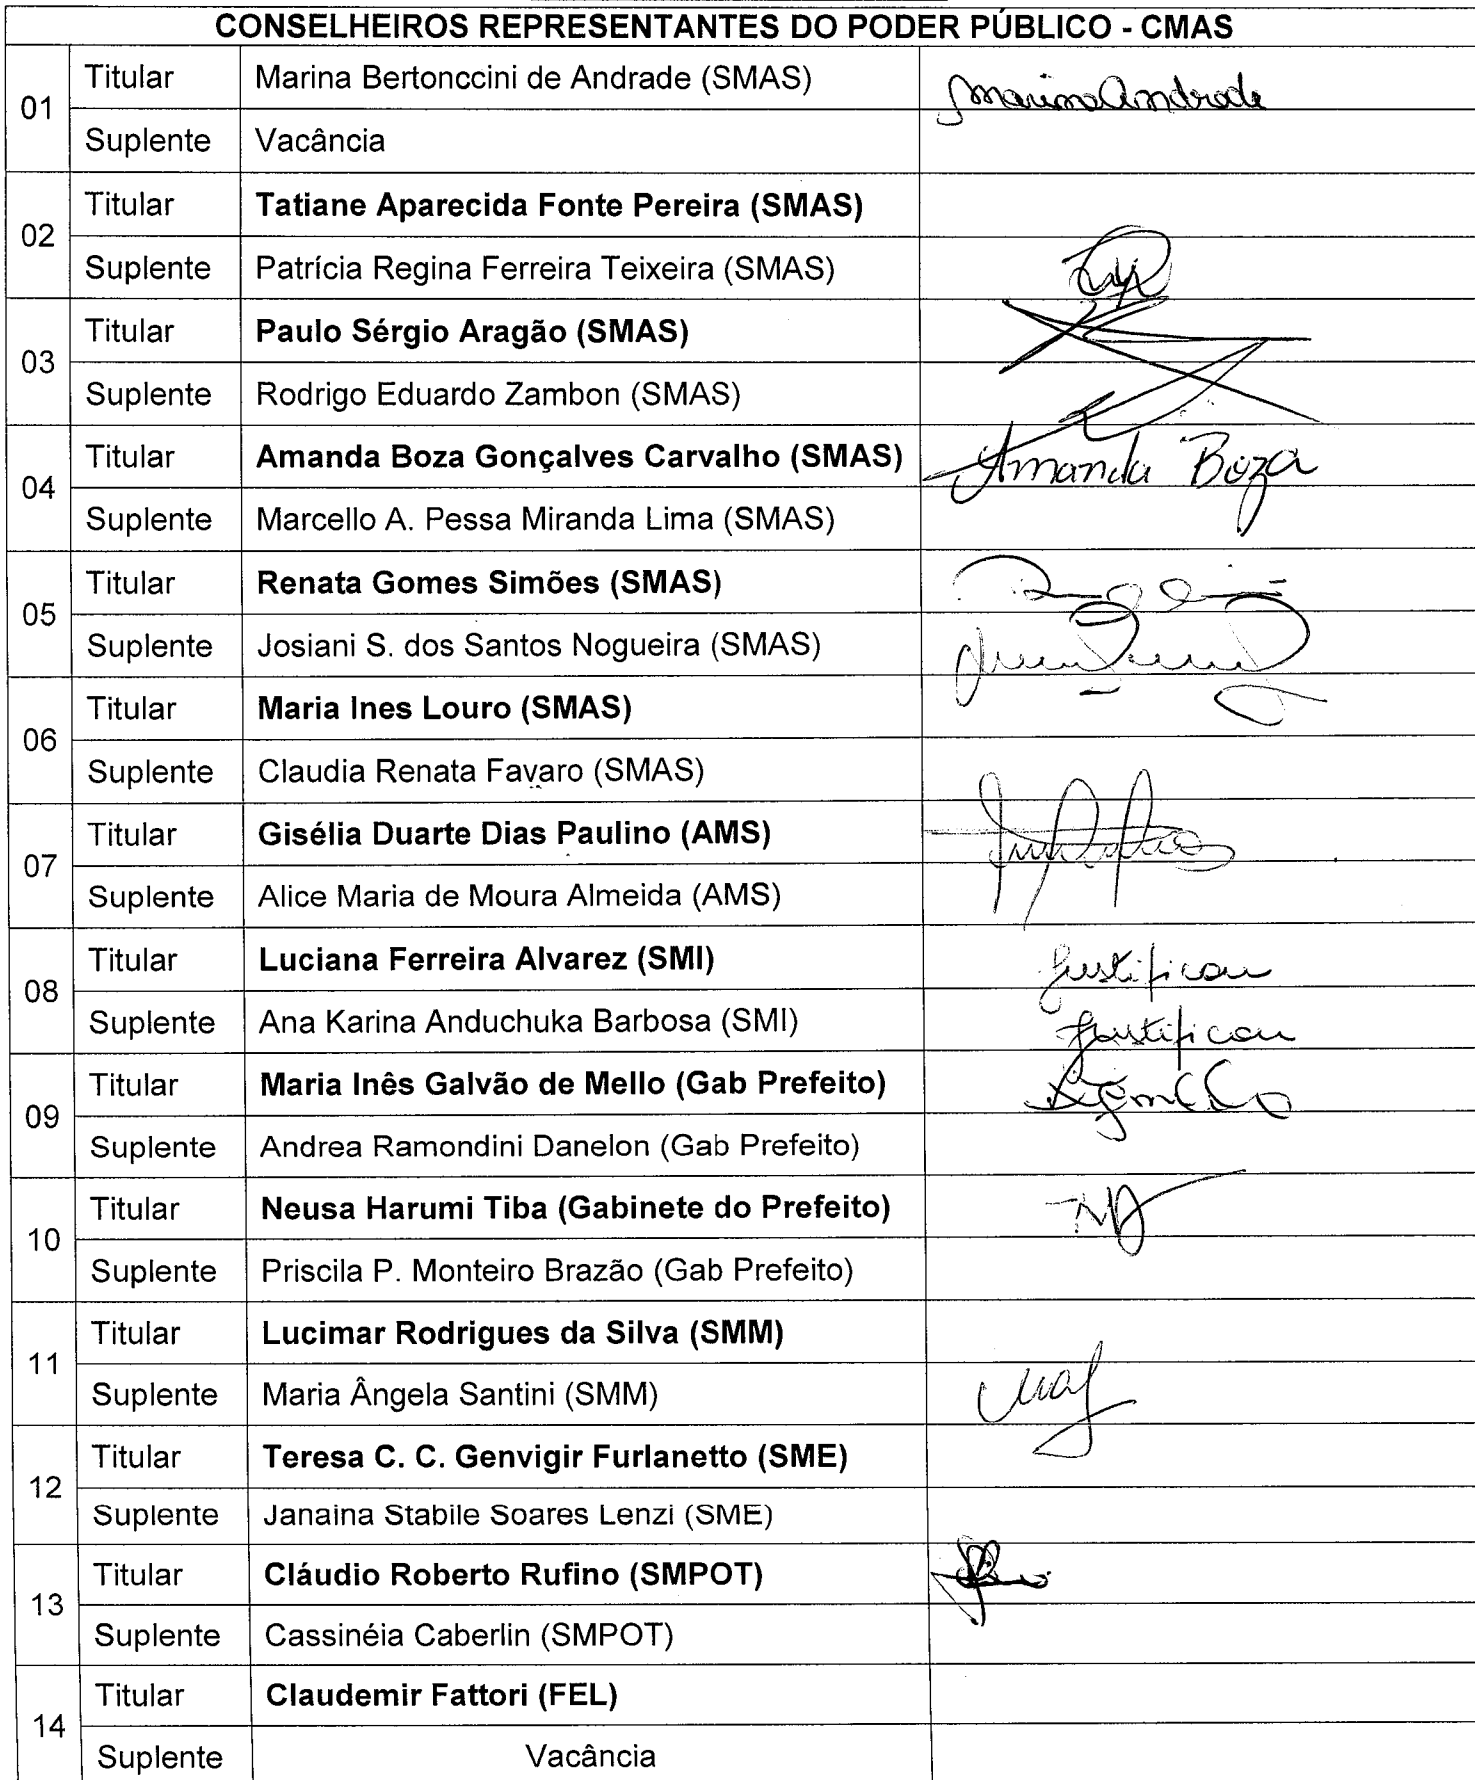 CONSELHEIROS REPRESENTANTES DO PODER PÚBLICO - CMAS
01 Titular Marina Bertonccini de Andrade (SMAS) Marina Andrade
Suplente Vacância
02 Titular Tatiane Aparecida Fonte Pereira (SMAS)
Suplente Patrícia Regina Ferreira Teixeira (SMAS)
03 Titular Paulo Sérgio Aragão (SMAS)
Suplente Rodrigo Eduardo Zambon (SMAS)
04 Titular Amanda Boza Gonçalves Carvalho (SMAS) Amanda Boza
Suplente Marcello A. Pessa Miranda Lima (SMAS)
05 Titular Renata Gomes Simões (SMAS)
Suplente Josiani S. dos Santos Nogueira (SMAS)
06 Titular Maria Ines Louro (SMAS)
Suplente Claudia Renata Favaro (SMAS)
07 Titular Gisélia Duarte Dias Paulino (AMS)
Suplente Alice Maria de Moura Almeida (AMS)
08 Titular Luciana Ferreira Alvarez (SMI) Justificou
Suplente Ana Karina Anduchuka Barbosa (SMI) Justificou
09 Titular Maria Inês Galvão de Mello (Gab Prefeito)
Suplente Andrea Ramondini Danelon (Gab Prefeito)
10 Titular Neusa Harumi Tiba (Gabinete do Prefeito)
Suplente Priscila P. Monteiro Brazão (Gab Prefeito)
11 Titular Lucimar Rodrigues da Silva (SMM)
Suplente Maria Ângela Santini (SMM)
12 Titular Teresa C. C. Genvigir Furlanetto (SME)
Suplente Janaina Stabile Soares Lenzi (SME)
13 Titular Cláudio Roberto Rufino (SMPOT)
Suplente Cassinéia Caberlin (SMPOT)
14 Titular Claudemir Fattori (FEL)
Suplente Vacância